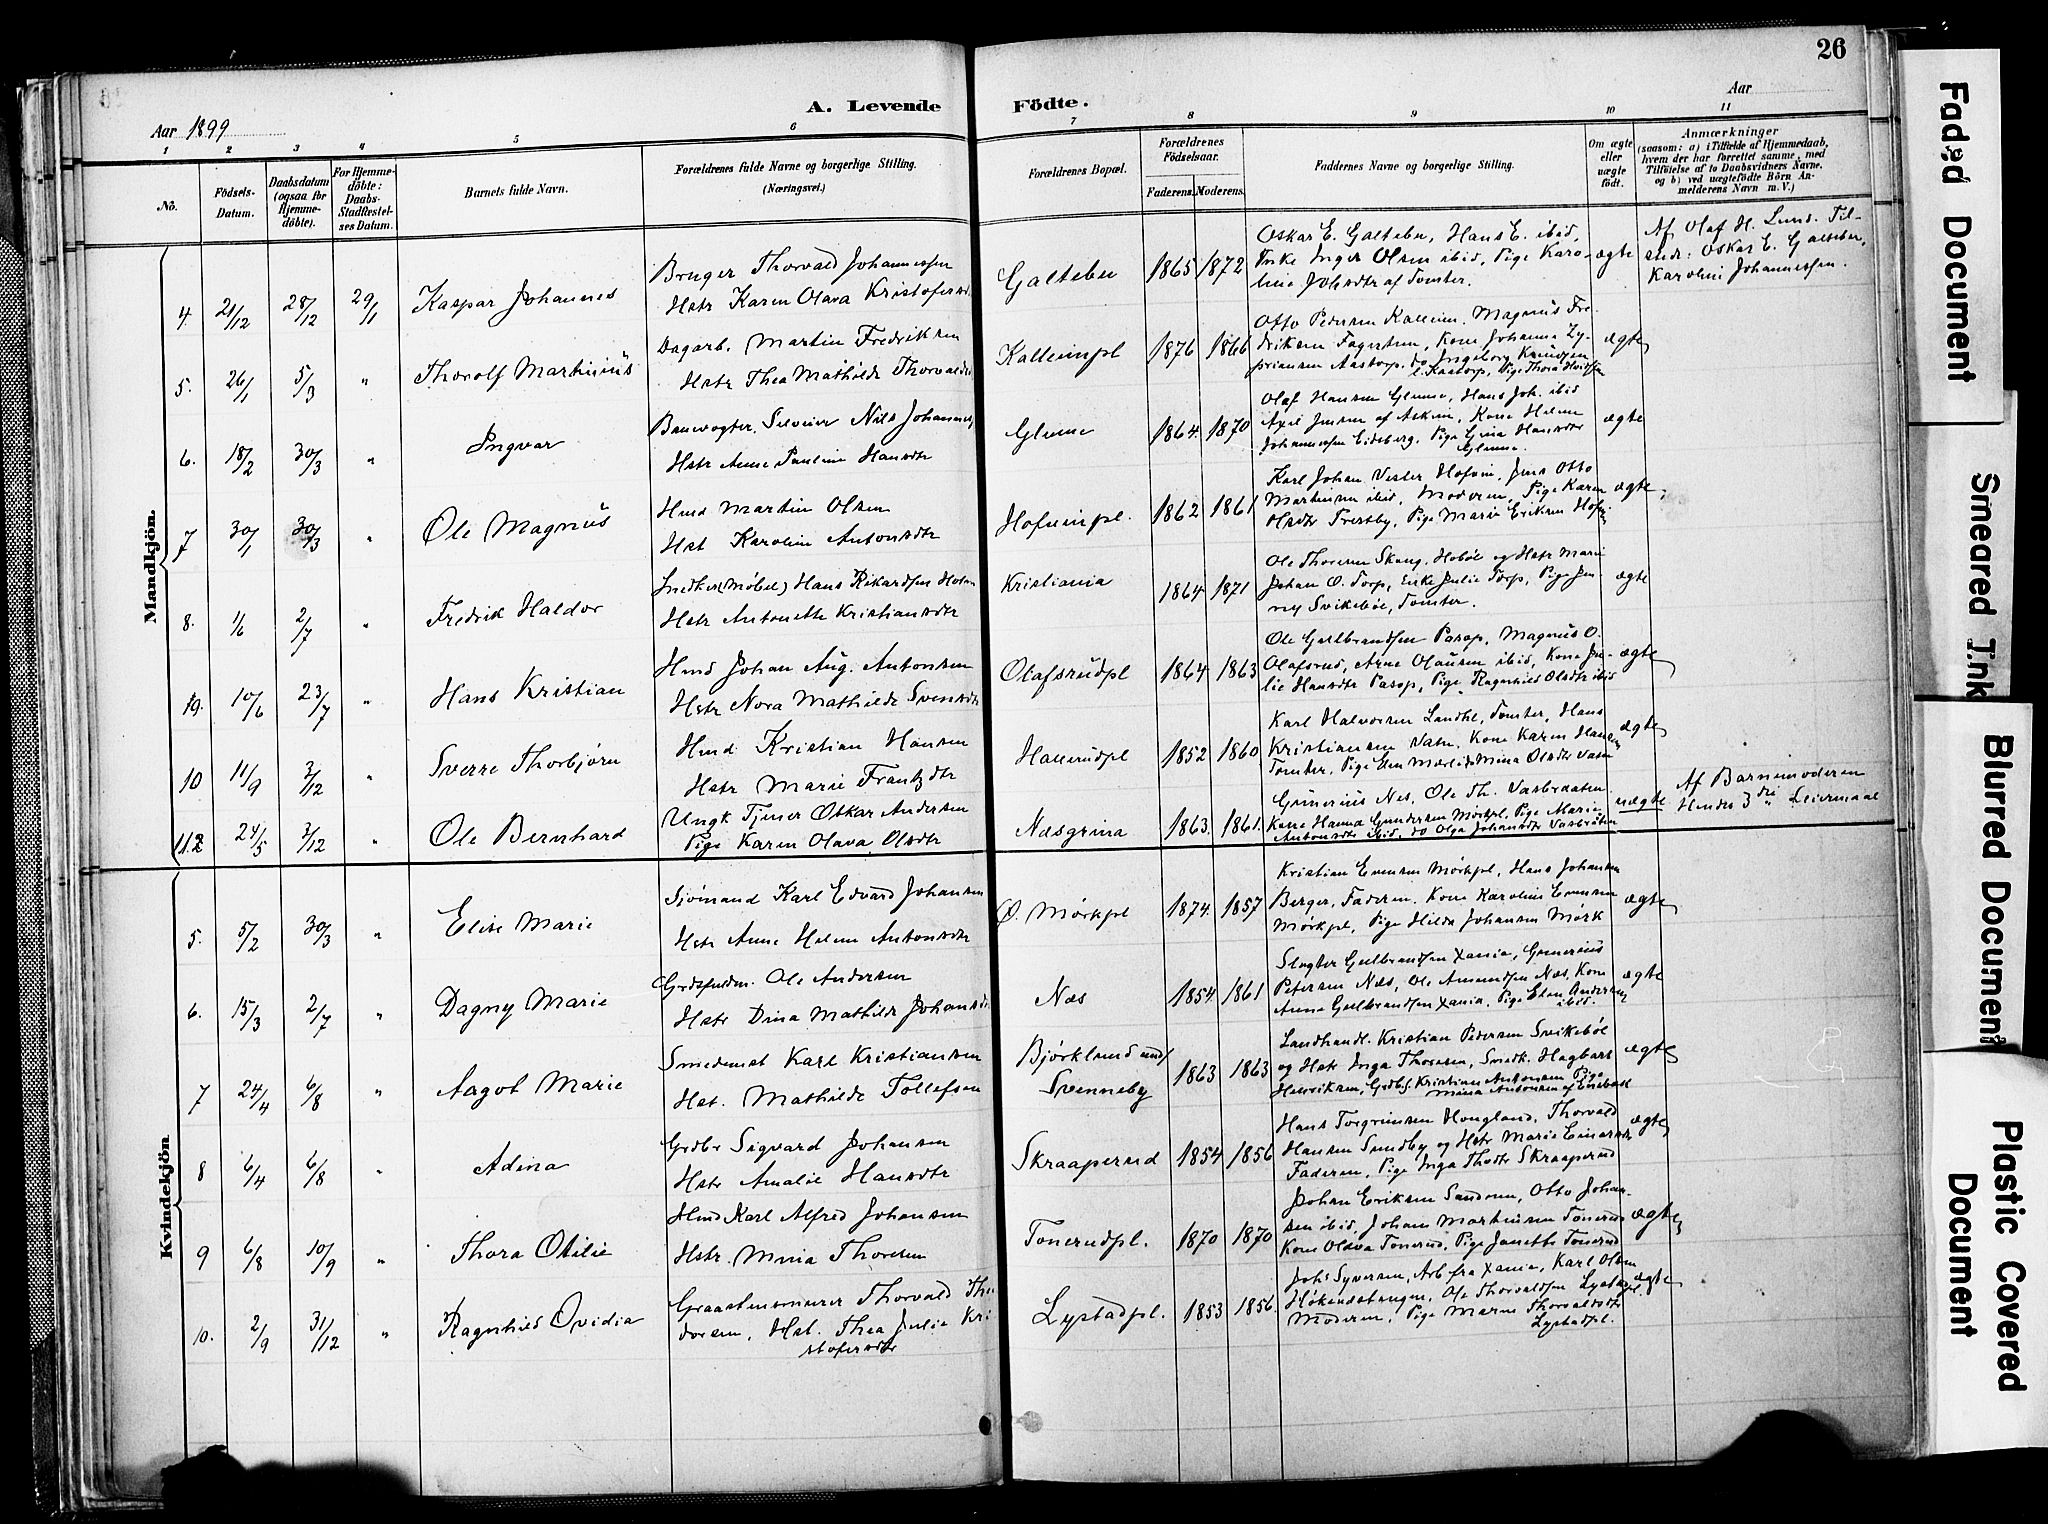 26
A. Levende Födte.
Aar 1899
Aar
1 2 3 4 5 6 7 8 9 10 11
No.
Födsels-Datum.
Daabsdatum (ogsaa för Hjemmedöbte).
For Hjemmedöbte: Daabs-Stadfæstelses Datum.
Barnets fulde Navn.
Forældrenes fulde Navne og borgerlige Stilling. (Næringsvei.)
Forældrenes Bopæl.
Forældrenes Födselsaar.
Faderens. Moderens.
Faddernes Navne og borgerlige Stilling.
Om ægte eller uægte födt.
Anmærkninger
(saasom: a) i Tilfælde af Hjemmedaab, hvem der har forrettet samme, med Tilföielse af to Daabsvidners Navne, og b) ved uægtefödte Börn Anmelderens Navn m. V.)
Mandkjön.
4. 21/12 28/12 29/1 Kaspar Johannes
Bruger Thorvald Johannessen
Hstr Karen Olava Kristofersdtr
Galtebu 1865 1872
Oskar E. Galtebu, Hans E. ibid,
Enke Inger Olsen ibid, Pige Karo-
line Johsdtr af Tomter.
ægte
Af Olaf H. Lund. Til-
stede: Oskar E. Galtebu,
Karoline Johannessen.
5. 26/1 5/3 " Thorolf Martinius
Dagarb. Martin Fredriksen
Hstr Thea Mathilde Thorvaldsd
Kalleimpl 1876 1866
Otto Pedersen Kalleim. Magnus Fre-
driksen Fagertun, Kone Johanna Zy-
priansen Aastorp, do Ingeborg Knudsen
ægte
6. 18/2 30/3 " Ingvar
Banevogter, Selveier Nils Johannes
Hstr Anne Pauline Hansdtr
Glenne 1864. 1870
Olaf Hansen Glenne, Hans Joh. ibid
Axel Jensen af Askim, Kone Helene
Johannessen Eidsberg. Pige Gina Hansdtr
Glenne
ægte
7 30/1 30/3 " Ole Magnus
Hmd Martin Olsen
Hst Karoline Antonsdtr
Hofvinpl. 1862 1861
Karl Johan Vester Hofvin, Jens Otto
Martinsen ibid, Moderen, Pige Karen
Olsdtr Fresthy, Pige Marie Eriksen Hofvin
ægte
8. 1/6 2/7 " Fredrik Haldor
Snedker (Møbel) Hans Rikardsen Holm
Hstr Antonette Kristiansdtr
Kristiania 1864 1871
Ole Thoresen Skaug, Hobøl og Hstr Marie
Johan O. Torp, Enke Julie Torp, Pige Jen-
ny Svikebøl, Tomter.
ægte
19. 10/6 23/7 " Hans Kristian
Hmd Johan Aug. Antonsen
Hstr Nora Mathilde Svensdtr
Olafsrudpl 1864 1863
Ole Gulbrandsen Parop, Magnus O.
Olafsrud, Arne Olausen ibid, Kone Ju-
lie Hansdtr Parop, Pige Ragnhild Olsdtr ibid
ægte
10 11/9 3/12 " Sverre Thorbjørn
Hmd Kristian Hansen
Hstr Marie Frantzdtr
Hallerudpl 1852 1860
Karl Halvorsen Landhl, Tomter, Hans
Kristiansen Vatn. Kone Karen Hansen
Tomter, Pige Elen Mærlid Mina Olsdtr Vatn
ægte
11. 24/5 3/12 " Ole Bernhard
Ungk Tjener Oskar Andersen
Pige Karen Olava Olsdtr
Næsgrina 1863. 1861.
Gunerius Næs, Ole Th. Vasbraaten.
Kone Hanna Gundersen Mørkpl, Pige Marie
Antonsdtr ibid, do Olga Johansdtr Vasbråten
uægte
Af Barnemoderen
Hendes 3die Leiermaal
Kvindekjön.
5. 5/2 30/3 " Elise Marie
Sjömand Karl Edvard Johansen
Hstr Anne Helene Antonsdtr
Ø. Mørkpl 1874. 1857
Kristian Evensen Mørkpl, Hans Johansen
Berger, Faderen. Kone Karoline Evensen
Mørkpl, Pige Hilda Johansen Mørk
ægte
6. 15/3 2/7 " Dagny Marie
Ole Andersen
Hstr Dina Mathilde Johansd
Næs 1854. 1861
Slagter Gulbrandsen Xania, Gunerius
Petersen Næs, Ole Amundsen Næs, Kone
Anne Gulbrandsen Xania, Pige Elen Andersen
ibid.
ægte
7 24/4 6/8 " Aagot Marie
Smedemst Karl Kristiansen
Hst. Mathilde Tollefsen
Bjørklund und/
Svenneby 1863 1863
Landhandl. Kristian Pedersen Svikebøl
og Hstr Inga Thoresen, Smedk. Hagbart
Henriksen, Grdbs. Kristian Antonsen Pige
Mina Antonsen af Enebak
ægte
8 6/4 6/8 " Adina
Grdbr Sigvard Johansen
Hstr Amalie Hansdtr
Skraaperud 1854 1856
Hans Torgrimsen Hougland, Thorvald
Hansen Sundby og Hstr Marie Einarsdtr
Faderen, Pige Inga Thsdtr Skraaperud
ægte
9 6/8 10/9 " Thora Otilie
Hmd Karl Alfred Johansen
Hstr. Mina Thoresen
Tonerudpl. 1870 1870
Johan Eriksen Sandem, Otto Johan-
sen ibid, Johan Martinsen Tonerud
Kone Olava Tonerud, Pige Janette Tonerud
ægte
10. 2/9 31/12 " Ragnhild Ovidia
Graastensmurer Thorvald Theo
dorsen, Hst. Thea Julie Kri
stofersdtr
Lystadpl. 1853 1856.
Johs Syversen, Arb fra Xania, Karl Olsen
Ole Thorvaldsen Lystadpl.
Moderen, Pige Maren Thorvaldsdtr
Lystadpl.
ægte
Faded Document
Smeared Ink
Blurred Document
Plastic Covered
Document